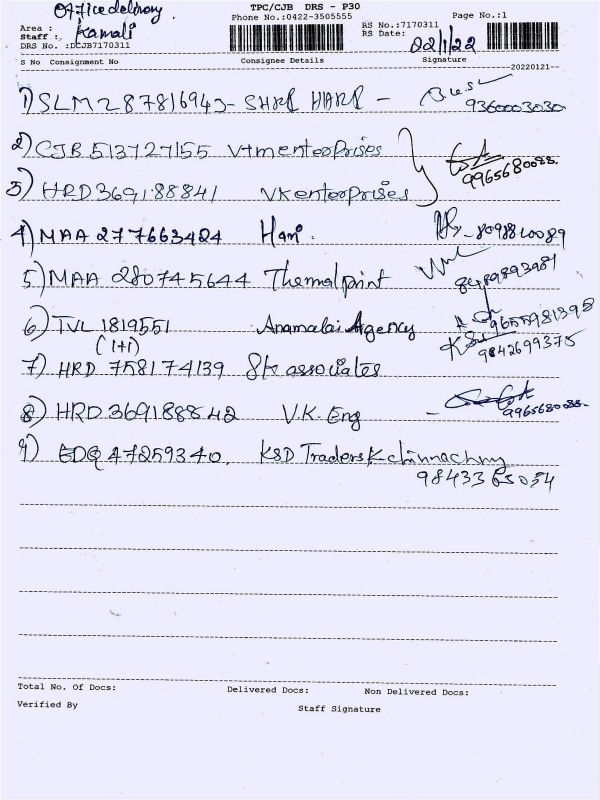 Office delivery
TPC/CJB DRS - P30
Phone No.:0422-3505555
Page No.:1
Area :
Staff : Kamali
RS No.:7170311
RS Date: 22/1/22
DRS No. :DCJB7170311
S No Consignment No Consignee Details Signature
20220121
1) SLM 287816943 - SHRI HARI - 9360003030
2) CJB 513727155 Vtm enterprises
9965680088.
3) HRD 369188841 VK enterprises
4) MAA 277663424 Hari. - 8098810089
5) MAA 280745644 Thermal print 8489893981
6) TVL 1819551 Anamalai Agency 9655981395
(1+1)
9842699375
7) HRD 758174139 Sk associates
8) HRD 369188842 V.K. Eng - 9965680088.
9) EDQ 47259340. KSD Traders
9843365054
Total No. Of Docs: Delivered Docs: Non Delivered Docs:
Verified By Staff Signature